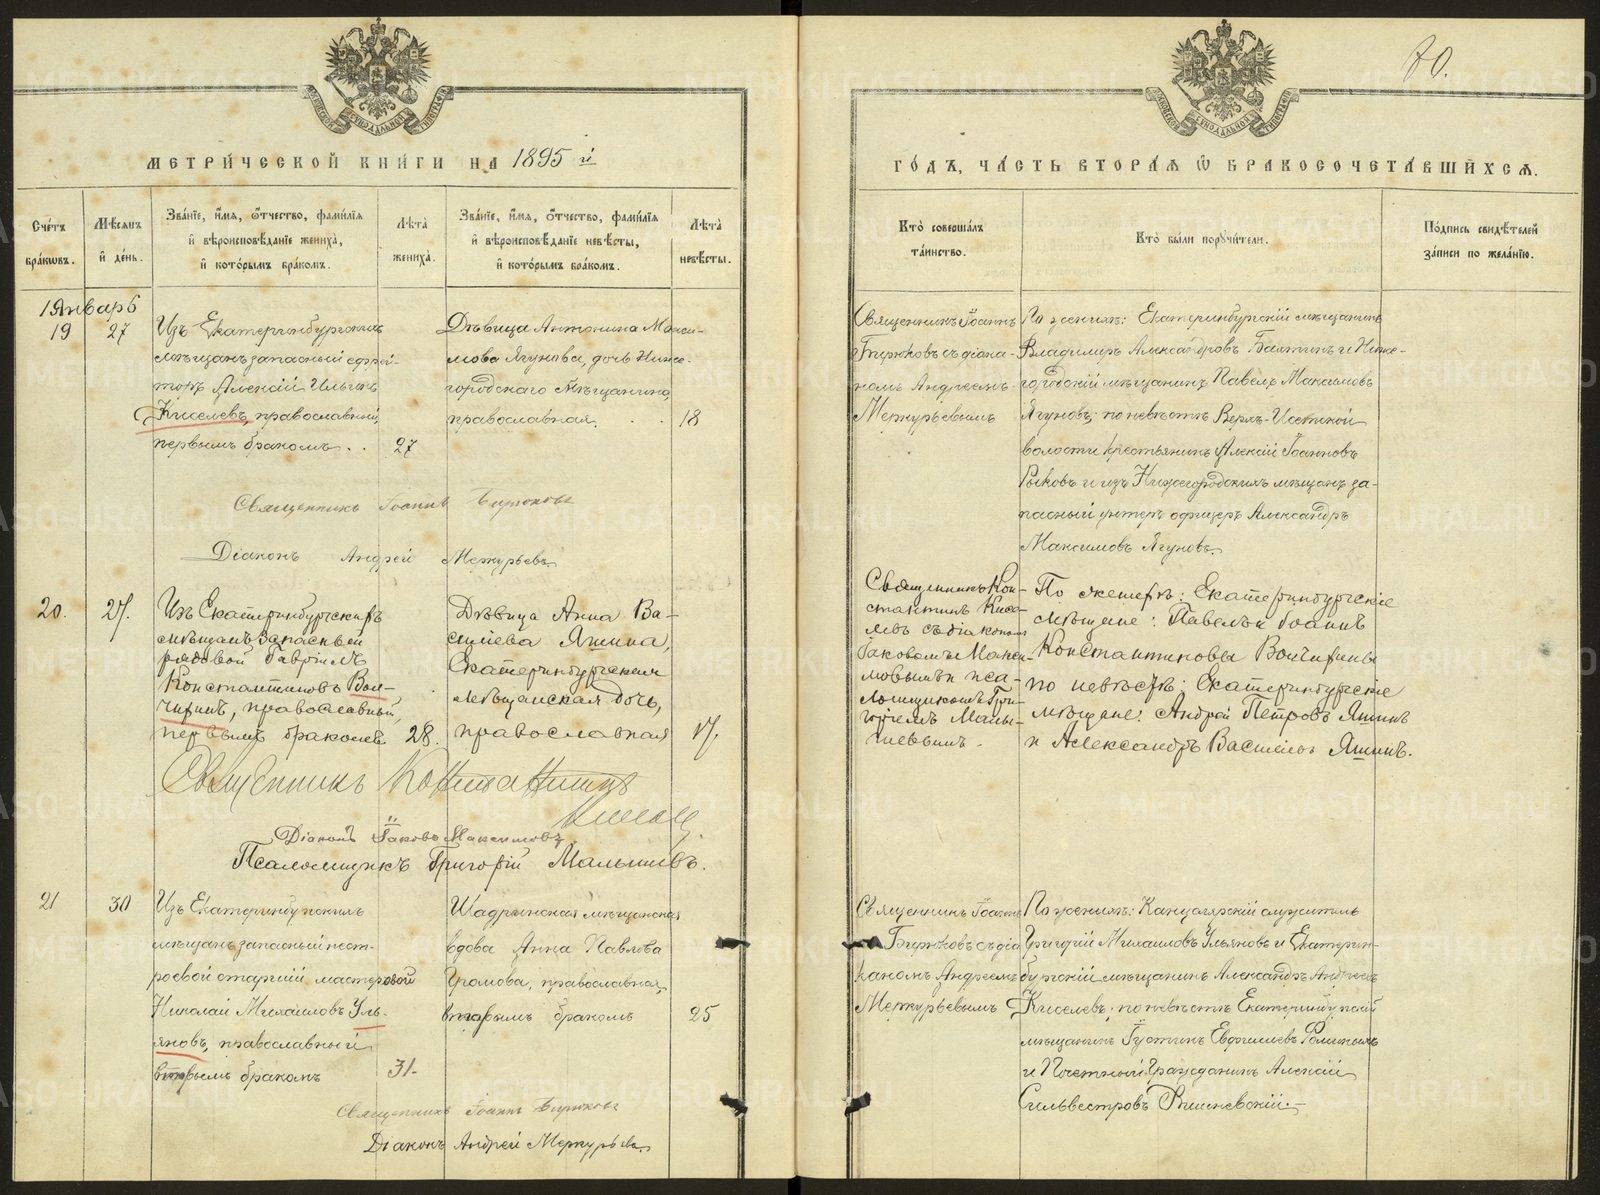 70.
МЕТРИЧЕСКОЙ КНИГИ НА 1895 й
ГОДЪ, ЧАСТЬ ВТОРАЯ Ѿ БРАКОСОЧЕТАВШИХСЯ.
Счетъ браковъ.
Мѣсяцъ и день.
Званіе, имя, отчество, фамилія и вѣроисповѣданіе жениха, и которымъ бракомъ.
Лѣта жениха.
Званіе, имя, отчество, фамилія и вѣроисповѣданіе невѣсты, и которымъ бракомъ.
Лѣта невѣсты.
Кто совершалъ таинство.
Кто были поручители.
Подпись свидѣтелей записи по желанію.
Январь
19
27
Изъ Екатеринбургскихъ
мѣщанъ запасный ефрей-
торъ Алексій Ильинъ
Киселевъ, православный,
первымъ бракомъ . .
27
Дѣвица Антонина Макси-
мова Ягунова, дочь Ниже-
городскаго мѣщанина,
православная.
18
Священникъ Іоаннъ
Бирюковъ съ діако-
номъ Андреемъ
Меркурьевымъ
По женихѣ: Екатеринбургскій мѣщанинъ
Владимиръ Александровъ и Ниже-
городскій мѣщанинъ Павелъ Максимовъ
Ягуновъ; по невѣстѣ Верхъ-Исетской
волости крестьянинъ Алексій Іоанновъ
Рыковъ и изъ Нижегородскихъ мѣщанъ за-
пасный унтеръ офицеръ Александръ
Максимовъ Ягуновъ.
Священникъ Іоаннъ Бирюковъ
Діаконъ Андрей Меркурьевъ
20.
27.
Изъ Екатеринбургскихъ
мѣщанъ, Запасный
рядовой Гавріилъ
Константиновъ Вол-
чихинъ, православный,
первымъ бракомъ
28.
Дѣвица Анна Ва-
силіева Яшина,
Екатеринбургская
мѣщанская дочь,
православная
17.
Священникъ Кон-
стантинъ
съ діакономъ
Іаковомъ Макси-
мовымъ и пса-
ломщикомъ Гри-
горіемъ Малы-
шевымъ.
По женихѣ: Екатеринбургскіе
мѣщане: Павелъ и Іоаннъ
Константиновы Волчихины
по невѣстѣ: Екатеринбургскіе
мѣщане: Андрей Петровъ Яшинъ
и Александръ Васильевъ Яшинъ.
Священникъ Константинъ
Діаконъ Іаковъ Максимовъ
Псаломщикъ Григорій Малышевъ.
21
30
Изъ Екатеринбургскихъ
мѣщанъ запасный
старшій мастеровой
Николай Михаиловъ Уль-
яновъ, православный
вторымъ бракомъ
31.
Шадринская мѣщанская
вдова Анна Павлова
Громова, православная,
вторымъ бракомъ
25
Священникъ Іоаннъ
Бирюковъ съ діа-
кономъ Андреемъ
Меркурьевымъ
По женихѣ: Канцелярскій служитель
Григорій Михаиловъ Ульяновъ и Екатерин-
бургскій мѣщанинъ Александръ Андреевъ
Киселевъ; по невѣстѣ Екатеринбургскій
мѣщанинъ Іустинъ
и Почетный Гражданинъ Алексій
Сильвестровъ Вишневскій.
Священникъ Іоаннъ Бирюковъ
Діаконъ Андрей Меркурьевъ